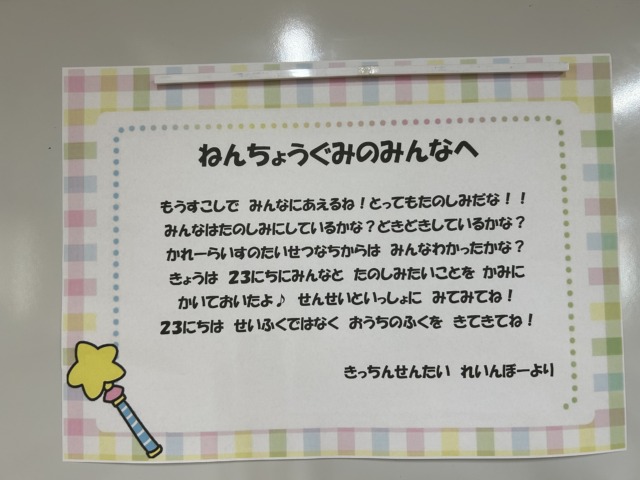 ねんちょうぐみのみんなへ
もうすこしで みんなにあえるね!とってもたのしみだな!!
みんなはたのしみにしているかな?どきどきしているかな?
かれーらいすのたいせつなちからは みんなわかったかな?
きょうは 23にちにみんなと たのしみたいことを かみに
かいておいたよ♪ せんせいといっしょに みてみてね!
23にちは せいふくではなく おうちのふくを きてきてね!
きっちんせんたい れいんぼーより